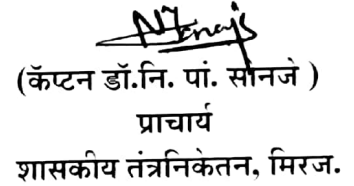 (कॅप्टन डॉ.नि. पां. सोनजे )
प्राचार्य
शासकीय तंत्रनिकेतन, मिरज.